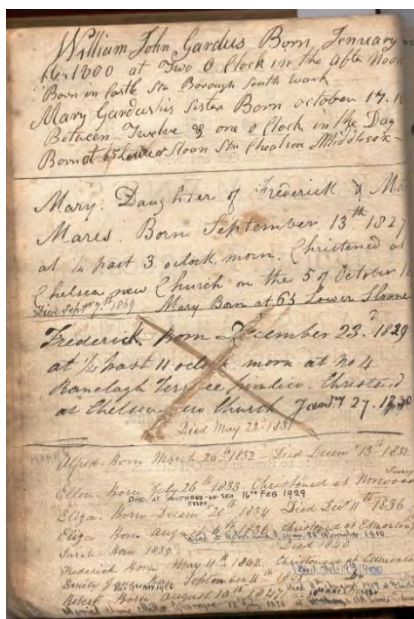 William John Gardus Born Jenuary
16. 1800 at Two O Clock in the After Noon
Born in Castle Stn Borough South wark
Mary Gardus his Sister Born october 17.
Between Twelve & one O Clock in the Day
Born at 65 Lower Sloan Stn Chealsea Middlesex
Mary. Daughter of Frederick &
Mares. Born September 13th 1827
at 1/4 past 3 oclock morn. Christened at
Chelsea new Church on the 5 of October
Died Septr 7th 1869 Mary Born at 65 Lower Sloane
Frederick born December 23d 1829
at 1/4 past 11 oclock morn at No 4
Ranelagh Terrace Pimlico. Christend
at Chelsea New Church Jany 27. 1830
Died May 22d 1831
Alfred. Born March 20th 1832 Died Decem 13th 1832
Ellen. Born July 26th 1833 Christened at Norwood
Died at Southend-on-Sea 16th Feb 1929
Essex
Eliza. Born Decem 20th 1834 Died Decr 11th 1836
Eliza Born August 1836 Christened at Edmonton
Sarah Born 1839 Died 1840
Frederick Born May 11th 1842. Christened at
Emily Born September 11th
Robert Born August 13th 1847